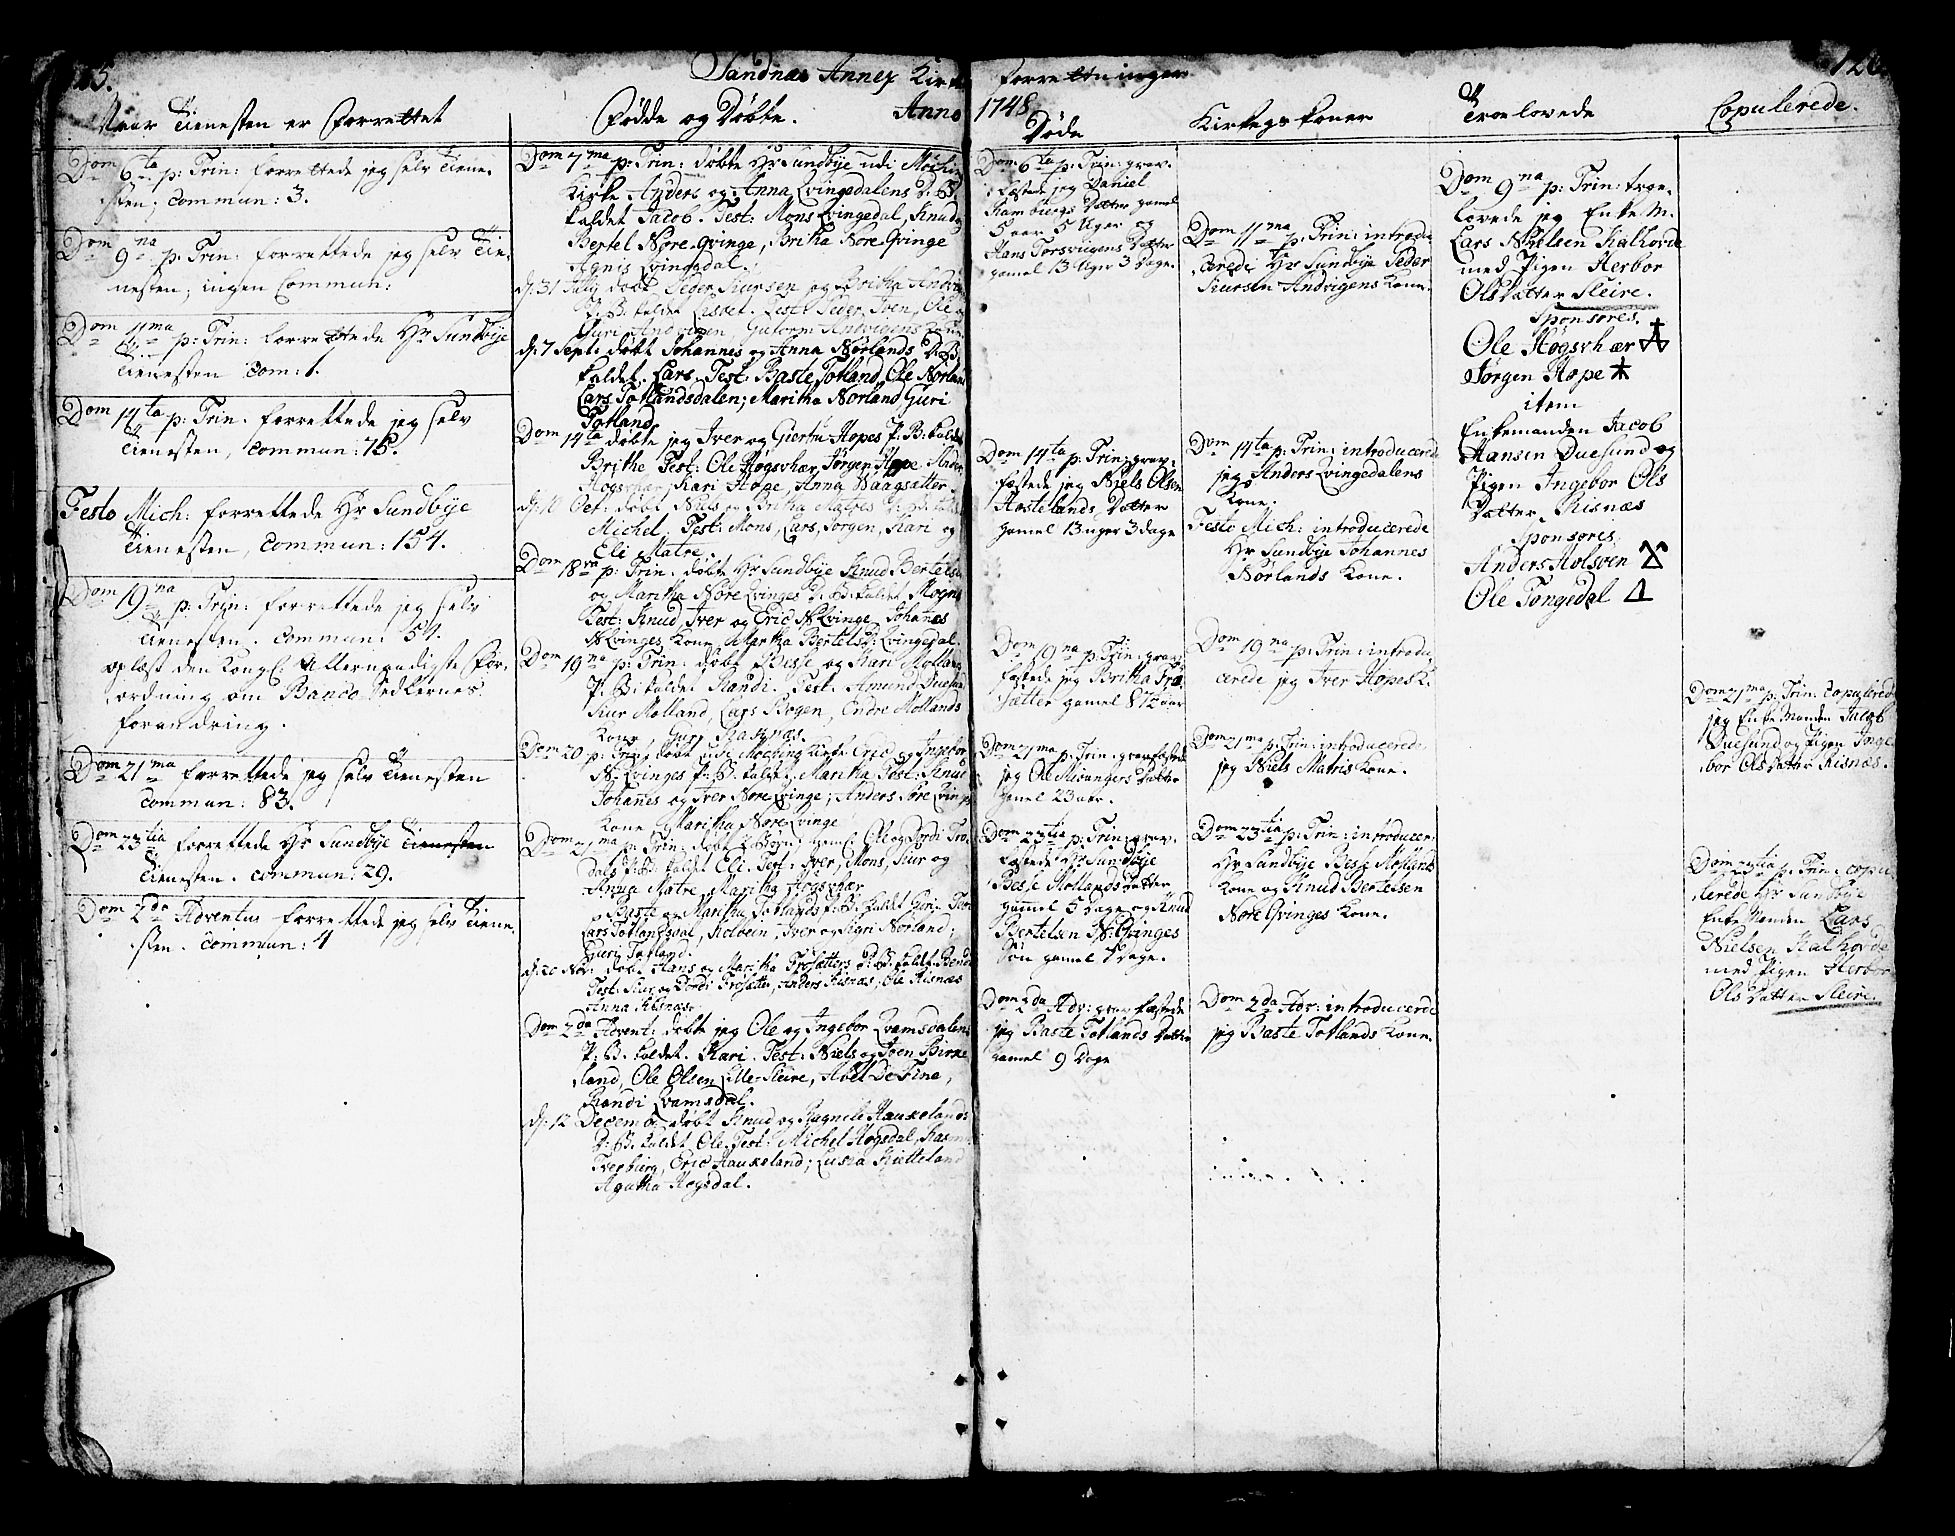 Sandnæs Annex Kirke forretninger
125.
126.
Naar Tienesten er forrettet
Dom 6ta p: Trin: forrettede jeg selv Tiene-
sten; commun: 3.
Dom 9na p: Trin: forrettede jeg selv Tie-
nesten; ingen Commun:
Dom 11ma p: Trin: forrettede Hr Sundbye
Tienesten com: 1.
Dom 14ta p: Trin. forrettede jeg selv
Tienesten, commun: 76.
Festo Mich: forrettede Hr Sundbye
Tienesten, commun: 154.
Dom 19na p: Trin: forrettede jeg selv
Tienesten. commun: 54.
oplæst den Kongl. Allernaadigste For-
ordning om Banco Sedlernes
forandring.
Dom 21ma forrettede jeg selv Tienesten
commun: 83.
Dom 23tia forrettede Hr Sundbye Tienesten
Tienesten. commun: 29.
Dom 2da Adventus forrettede jeg selv Tiene-
sten. commun: 4
Fødde og Døbte. Anno 1748
Dom 7ma p: Trin: døbte Hr Sundbye udi
Kirke Anders og Anna Qvingedalens D: B:
kaldet Jacob. Test: Mons Qvingedal, Knud og
Bertel Nore Qvinge, Britha Nore Qvinge
Agnis Qvingedal.
d: 31 July døbt Peder Siursen og Britha
D: B: kaldet Lisbet. Test: Peder, Iven, Ole
Guri Andvigen Gutorm Andvigens
d: 7 Sept: døbt Johannes og Anna Nørlands D: B:
kaldet Lars. Test: Baste Totland, Ole Nørland
Lars Totlandsdalen; Maritha Nørland Guri
Totland.
Dom 14ta døbte jeg Iver og Giertrú Hopes P: B: kaldet
Brithe Test: Ole Høgsvhær, Jørgen Hope,
Høgsvhær, Kari Hope, Anna Vaagsæter
d: 10 Oct: døbt Niels og Britha Matres D: B: kaldet
Michel. Test: Mons, Lars, Jørgen, Kari og
Eli Matre.
Dom 18va p: Trin. døbte Hr Sundbye Knud Bertelsen
og Maritha Nore Qvinges D: B: kaldet Mogns
Test: Knud, Iver og Eric N: Qvinge, Johanes
N: Qvinges Kone, Martha Bertels D: Qvingedal.
Dom 19na p: Trin: døbt Besse og Kari Molland
P: B: kaldet Randi. Test: Amund Duesund
Siur Molland, Lars Bogen, Endre Mollands
Kone, Guri Rasynæs.
Dom 20 p: Trin: døbt udi Kirke Eric og Ingebor
N: Qvinges P: B: kaldet Maritha Test: Knud
Johanes og Iver Nore Qvinge; Anders Nore Qvinges
Kone, Maritha Nore Qvinge
Dom 21ma p: Trin: døbt
P: B: kaldet Eli. Test: Iver, Mons, Siur og
Anna Matre, Maritha Høgsvhær
Baste og Maritha Totlands P: B: kaldet Guri. Test:
Lars Totlandsdal, Kolbein, Iver og Kari Norland;
Guri Totland.
d: 20 Nov: døbt Hans og Maritha Frøsætters D: B: kaldt
Test: Siur og Lordi Frøsætter, Anders Risnæs, Ole Risnæs
Anna Risnæs.
Dom 2da Advent: døbt jeg Ole og Ingebor Qvamsdalens
P: B. kaldet. Kari. Test: Niels og Joen Birke-
land, Ole Olsen Lille-Sleire, Abel De Fine,
Randi Qvamsdal.
d: 12 Decemb: døbt Knud og Ragnele Haukelands
D: B: kaldet Ole. Test: Michel Høgsdal,
Tverberg, Eric Haukeland; Lusia Kietteland
Agatha Høgsdal.
Døde
Dom 6ta p: Trin: grav-
fæstede jeg Daniel
Ramburgs Datter gamel
5 aar 5 Uger og
Hans Torsvigens Datter
gamel 13 Uger 3 Dage.
Dom 14ta p: Trin: grav-
fæstede jeg Niels Olsen
Hostelands, Datter
gamel 13 uger 3 dage
Dom 19na p: Trin: grav-
fæstede jeg Britha Frø-
sætter gamel 81½ aar
Dom 21ma p: Trin: gravfæstede
jeg Ole Misangers Datter
gamel 23 aar.
Dom 23tia p: Trin: grav-
fæstede Hr Sundbye
Besse Mollands Datter
gamel 5 Dage og Knud
Bertelsen N: Qvinges
Søn gamel Dage.
Dom 2da Adv: gravfæstede
jeg Baste Totlands Datter
gamel 9 Dage
Kirkegs Koner
Dom 11ma p: Trin: introdu-
cerede Hr Sundbye Peder
Siursen Andvigens Kone.
Dom 14ta p: Trin: introducerede
jeg Anders Qvingedalens
Kone.
Festo Mich: introducerede
Hr Sundbye Johannes
Nørlands Kone.
Dom 19na p: Trin: introdu-
cerede jeg Iver Hopes K.
Dom 21ma p: Trin: introducerede
jeg Niels Matris Kone.
Dom 23tia p: Trin: introducer-
Hr Sundbye Besse Mollands
Kone og Knud Bertelsen
Nore Qvinges Kone.
Dom 2da Adv: introducerede
jeg Baste Totlands Kone.
Troelovede
Dom 9na p: Trin: troe-
lovede jeg Enke M.
Lars Nielsen Kalhovde
med Pigen Herbor
Ols Datter Sleire.
Sponsores.
Ole Høgsvhær
Jørgen Hope
item
Enkemanden Jacob
Hansen Duesund og
Pigen Ingebor Ols
Datter Risnæs
Sponsores
Anders Molsven
Ole Tongedal
Copulerede.
Dom 21ma p: Trin: copulerede
jeg Enke Manden Jacob
Duesund og Pigen Inge-
bor Ols Datter Risnæs.
Dom 23tia p: Trin: copu-
lerede Hr Sundbye
Enke Manden Lars
Nielsen Kalhovde
med Pigen Herbor
Ols Datter Sleire.